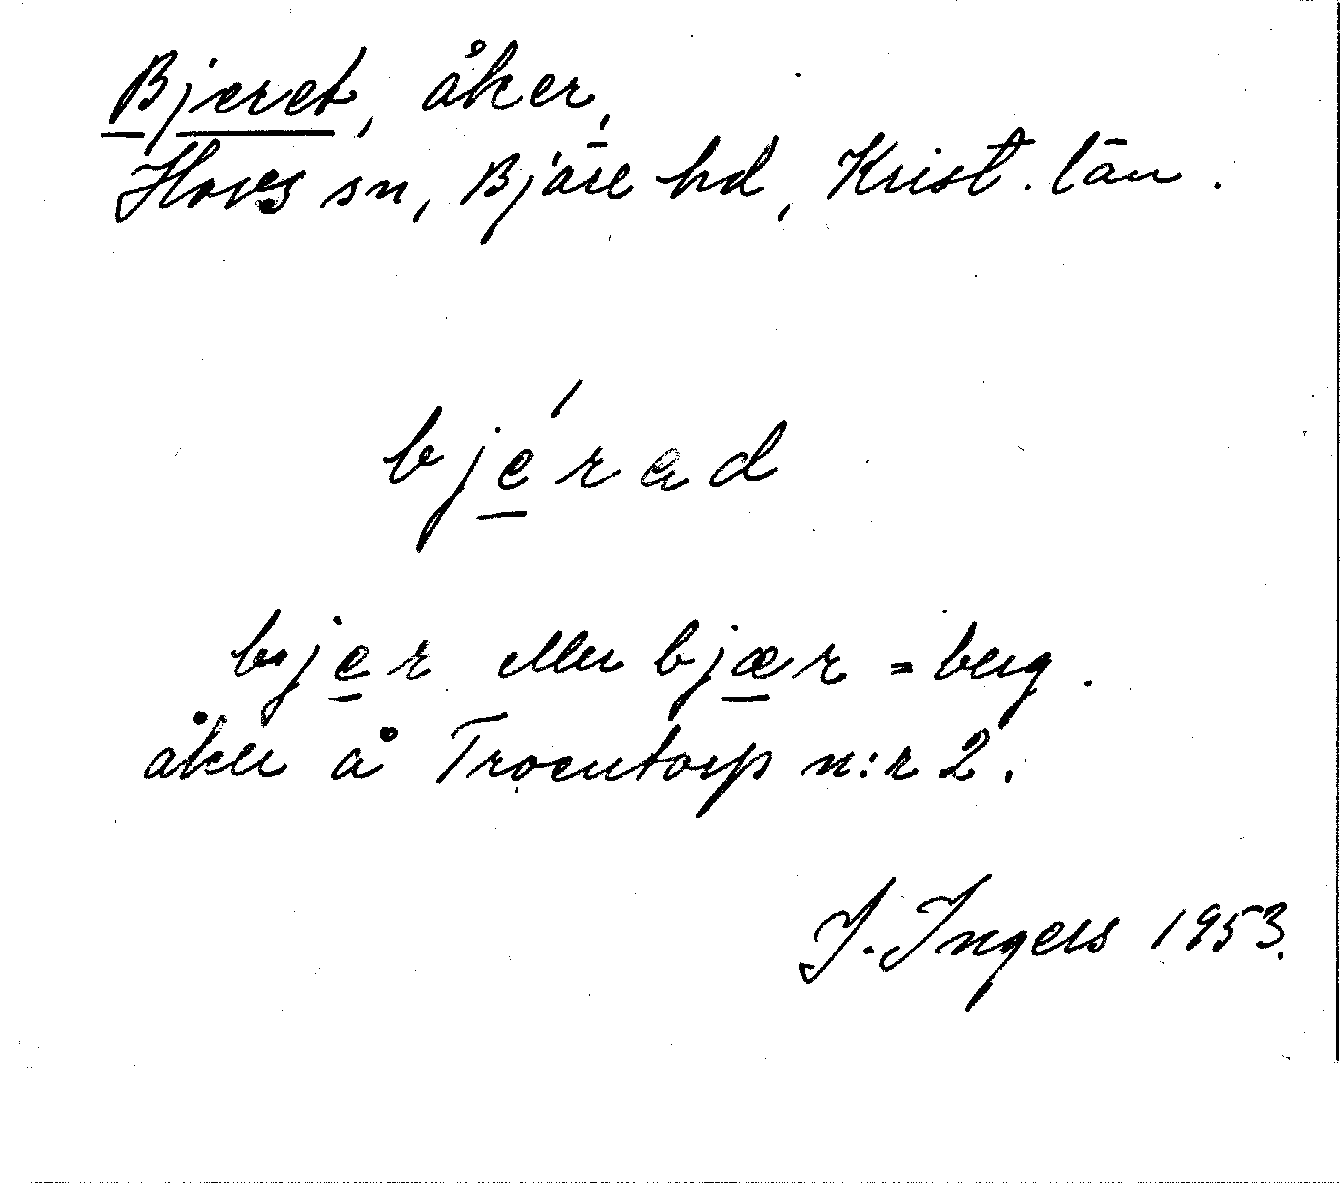 Bjeret, åker,
Hovs sn, Bjäre hd, Krist. län.
bjérad
bjer eller bjær = berg.
åker å Troentorp n:r 2.
I. Ingers 1953.